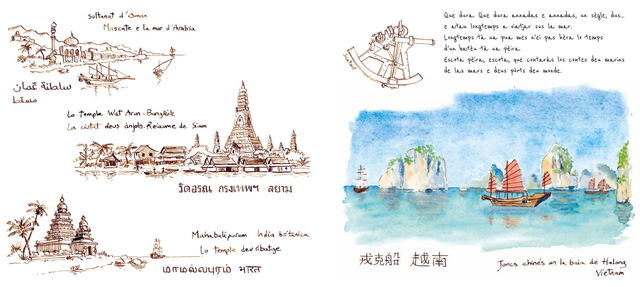 sultanat d'Oman
Mascate e la mar d'Arabia
سلطنة عمان
مسقط
Lo temple Wat Arun - Bangkòk
La ciutat deus ànjols. Reiaume de Siam
วัดอรุณ กรุงเทพฯ สยาม
Mahabalipuram India britanica
Lo temple deu ribatge
மாமல்லபுரம் भारत
Que dura. Que dura annadas e annadas, un sègle, dus...
e atau longtemps a viatjar sus la mar.
Longtemps tà un pua mes n'ei pas hèra lo temps
d'un batèu tà un pèira.
Escota pèira, escota, que contaràs los contes deu marins
de las mars e deus pòrts deu monde.
戎克船 越南
Joncs chinés en la baia de Halong
Vietnam